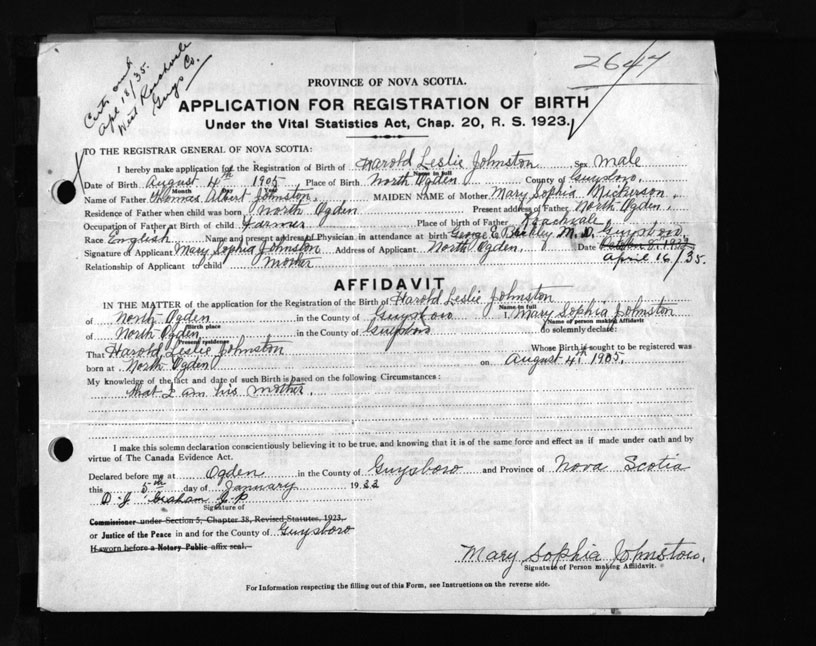 2647
Apl 18/35.
West
Guys Co.
PROVINCE OF NOVA SCOTIA.
APPLICATION FOR REGISTRATION OF BIRTH
Under the Vital Statistics Act, Chap. 20, R. S. 1923.
TO THE REGISTRAR GENERAL OF NOVA SCOTIA:
I hereby make application for the Registration of Birth of Harold Leslie Johnston Sex male
Name in full
Date of Birth August 4th 1905 Place of Birth North Ogden County of Guysboro.
Month Day Year
Name of Father Thomas Albert Johnston, MAIDEN NAME of Mother Mary Sophia Nickerson.
Residence of Father when child was born North Ogden Present address of Father, North Ogden,
Occupation of Father at Birth of child Farmer Place of birth of Father
Race English Name and present address of Physician in attendance at birth George E. Buckley M. D. Guysboro
Signature of Applicant Mary Sophia Johnston Address of Applicant North Ogden, Date
Relationship of Applicant to child mother April 16/35.
AFFIDAVIT
IN THE MATTER of the application for the Registration of the Birth of Harold Leslie Johnston
Name in full
of North Ogden in the County of Guysboro I, Mary Sophia Johnston
Birth place Name of person making Affidavit
of North Ogden in the County of Guysboro do solemnly declare:
Present residence
That Harold Leslie Johnston Whose Birth is sought to be registered was
born at North Ogden on August 4th 1905.
My knowledge of the fact and date of such Birth is based on the following Circumstances:
that I am his mother.
I make this solemn declaration conscientiously believing it to be true, and knowing that it is of the same force and effect as if made under oath and by
virtue of The Canada Evidence Act.
Declared before me at Ogden in the County of Guysboro and Province of Nova Scotia
this 5th day of January 1933
D. J. Graham J. P.
Signature of
Commissioner under Section 5, Chapter 38, Revised Statutes, 1923,
or Justice of the Peace in and for the County of Guysboro
If sworn before a Notary Public affix seal.
Mary Sophia Johnston.
Signature of Person making Affidavit.
For Information respecting the filling out of this Form, see Instructions on the reverse side.